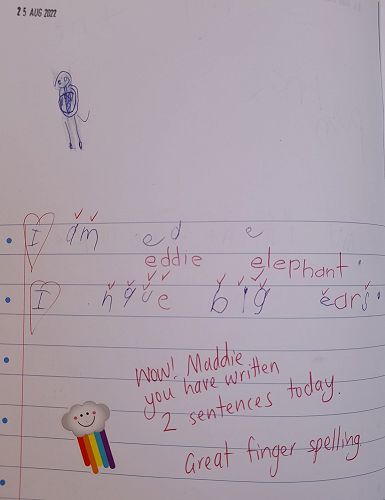 25 AUG 2022
I am ed e
eddie elephant.
I have big ears.
Wow! Maddie
you have written
2 sentences today.
Great finger spelling